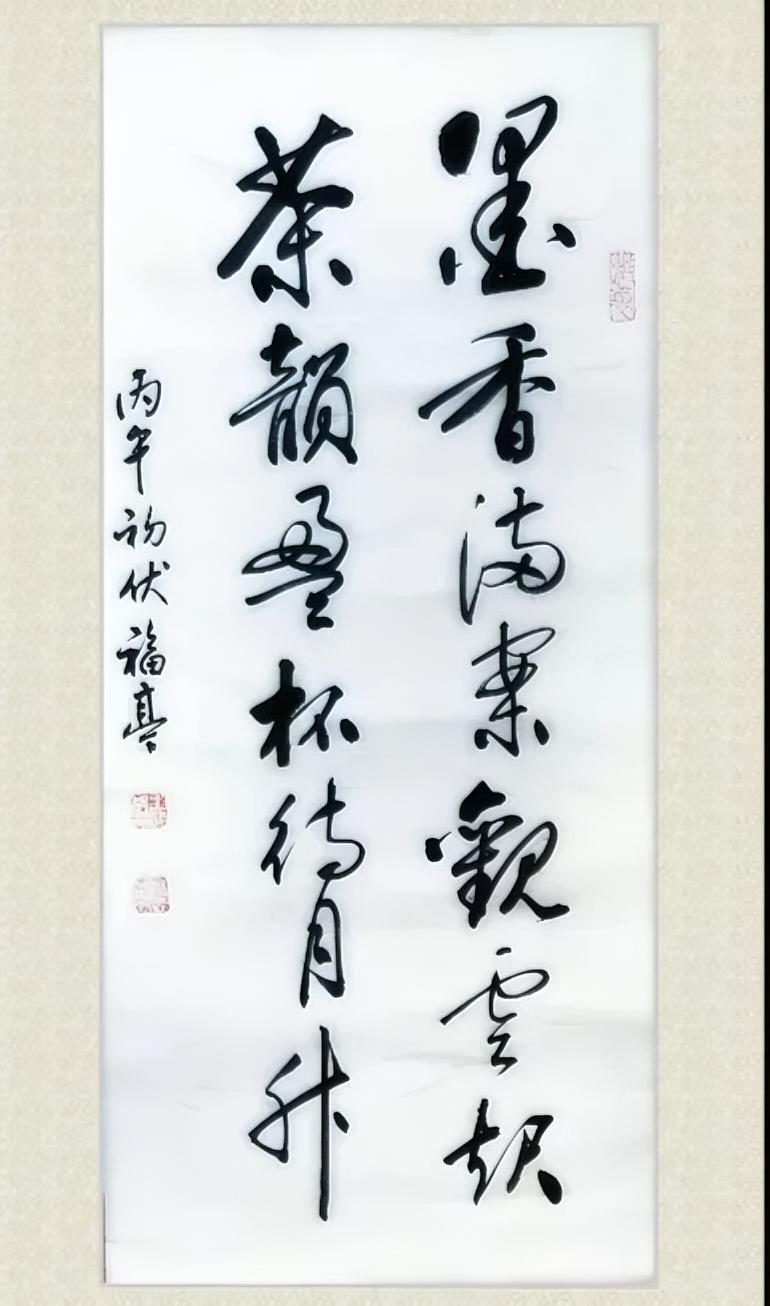 墨香满案觀雲起
茶韻盈杯待月升
丙午初伏福亭